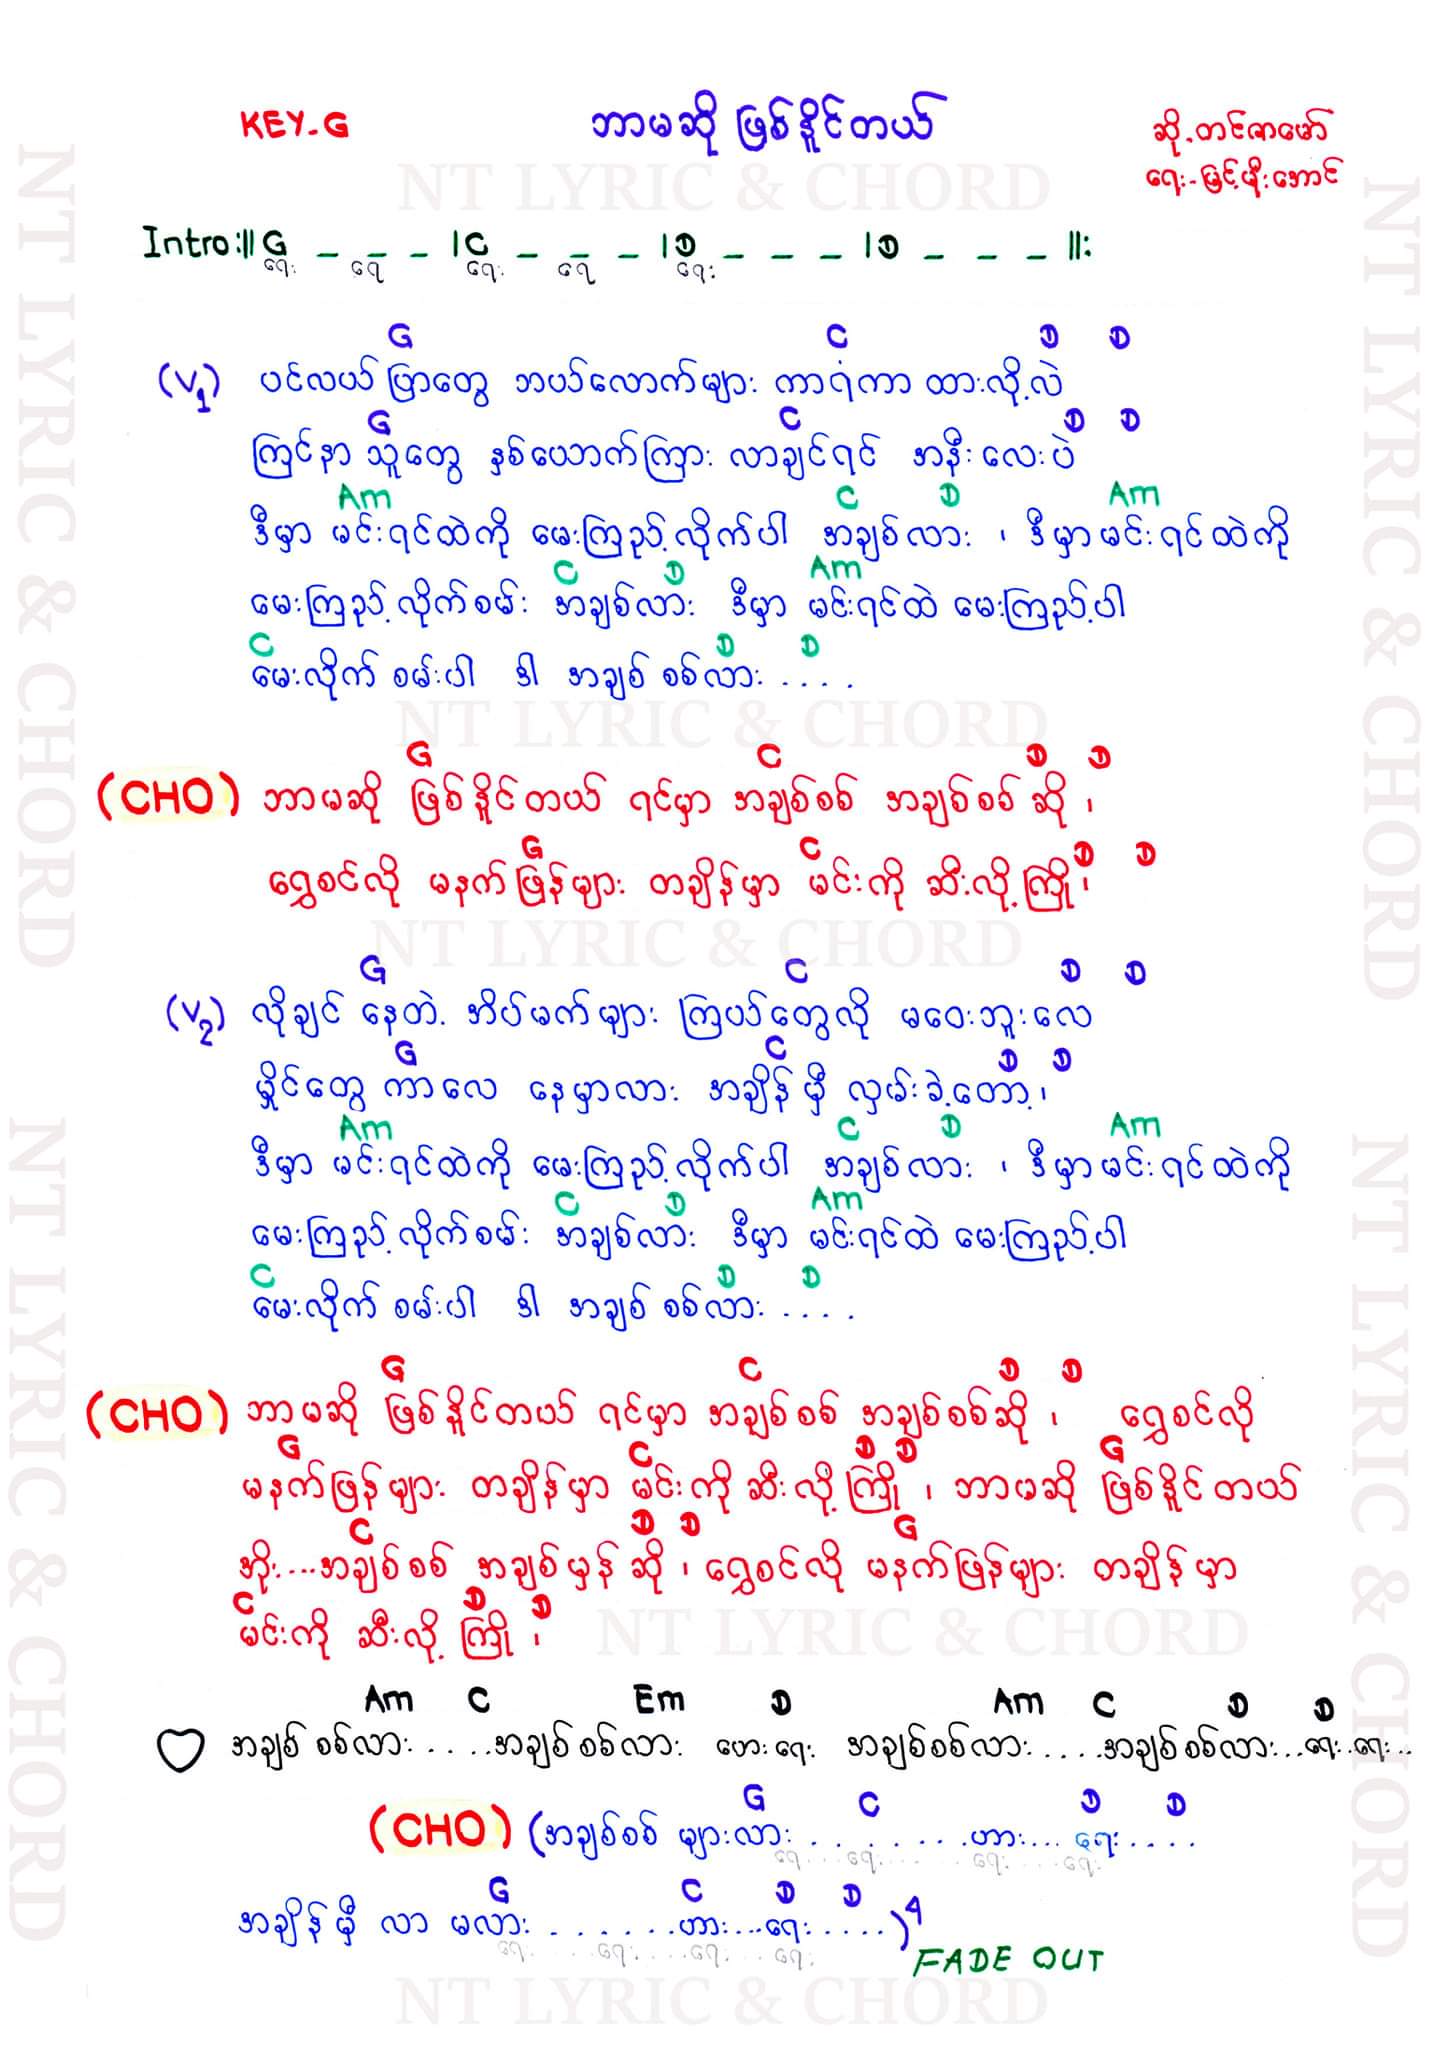 KEY-G
ဘာမဆို ဖြစ်နိူင်တယ်
ဆို.တင်ဇာမော်
ရေး-မြင့်မိုးအောင်
NT LYRIC & CHORD
Intro:|| G _ _ _ | C _ _ _ | D _ _ _ | D _ _ _ ||:
ရေး ရေ ရေး ရေ ရေး
G C D D
(V1) ပင်လယ်ပြာတွေ ဘယ်လောက်များ ကာရံကာ ထားလို့လဲ
G C D D
ကြင်နာ သူတွေ နှစ်ယောက်ကြား လာချင်ရင် အနီးလေးပဲ
Am C D Am
ဒီမှာ မင်းရင်ထဲကို မေးကြည့်လိုက်ပါ အချစ်လား ၊ ဒီမှာ မင်းရင်ထဲကို
C D Am
မေးကြည့်လိုက်စမ်း အချစ်လား ဒီမှာ မင်းရင်ထဲ မေးကြည့်ပါ
C D D
မေးလိုက် စမ်းပါ ဒါ အချစ် စစ်လား ....
NT LYRIC & CHORD
G C D D
(CHO) ဘာမဆို ဖြစ်နိူင်တယ် ရင်မှာ အချစ်စစ် အချစ်စစ် ဆို ၊
G C D D
ရွှေစင်လို မနက်ဖြန်များ တချိန်မှာ မင်းကို ဆီးလို့ကြို ၊
NT LYRIC & CHORD
G C D D
(V2) လိုချင် နေတဲ့ အိပ်မက်များ ကြယ်တွေလို မဝေးဘူးလေ
G C D D
မှိုင်တွေ ကာလေ နေမှာလား အချိန်မှီ လှမ်းခဲ့တော့ ၊
Am C D Am
ဒီမှာ မင်းရင်ထဲကို မေးကြည့်လိုက်ပါ အချစ်လား ၊ ဒီမှာ မင်းရင်ထဲကို
C D Am
မေးကြည့်လိုက်စမ်း အချစ်လား ဒီမှာ မင်းရင်ထဲ မေးကြည့်ပါ
C D D
မေးလိုက် စမ်းပါ ဒါ အချစ် စစ်လား ....
G C D D
(CHO) ဘာမဆို ဖြစ်နိူင်တယ် ရင်မှာ အချစ်စစ် အချစ်စစ်ဆို ၊ ရွှေစင်လို
G C D D G
မနက်ဖြန်များ တချိန်မှာ မင်းကို ဆီးလို့ကြို ၊ ဘာမဆို ဖြစ်နိူင်တယ်
C D D G
အိုး....အချစ်စစ် အချစ်မှန် ဆို ၊ ရွှေစင်လို မနက်ဖြန်များ တချိန်မှာ
C D D
မင်းကို ဆီးလို့ ကြို ၊
NT LYRIC & CHORD
Am C Em D Am C D D
အချစ် စစ်လား.....အချစ်စစ်လား ဟေးရေး အချစ်စစ်လား.....အချစ်စစ်လား...ရေး..ရေး..
G C D D
(CHO) (အချစ်စစ် များလား........ဟား...ရေး....
ရေ....ရေး......ရေး....ရေး
G C D D
အချိန်မှီ လာ မလား.......ဟား...ရေး.....)4
ရေ......ရေး....ရေး....ရေး
FADE OUT
NT LYRIC & CHORD
NT LYRIC & CHORD
NT LYRIC & CHORD
NT LYRIC & CHORD
NT LYRIC & CHORD